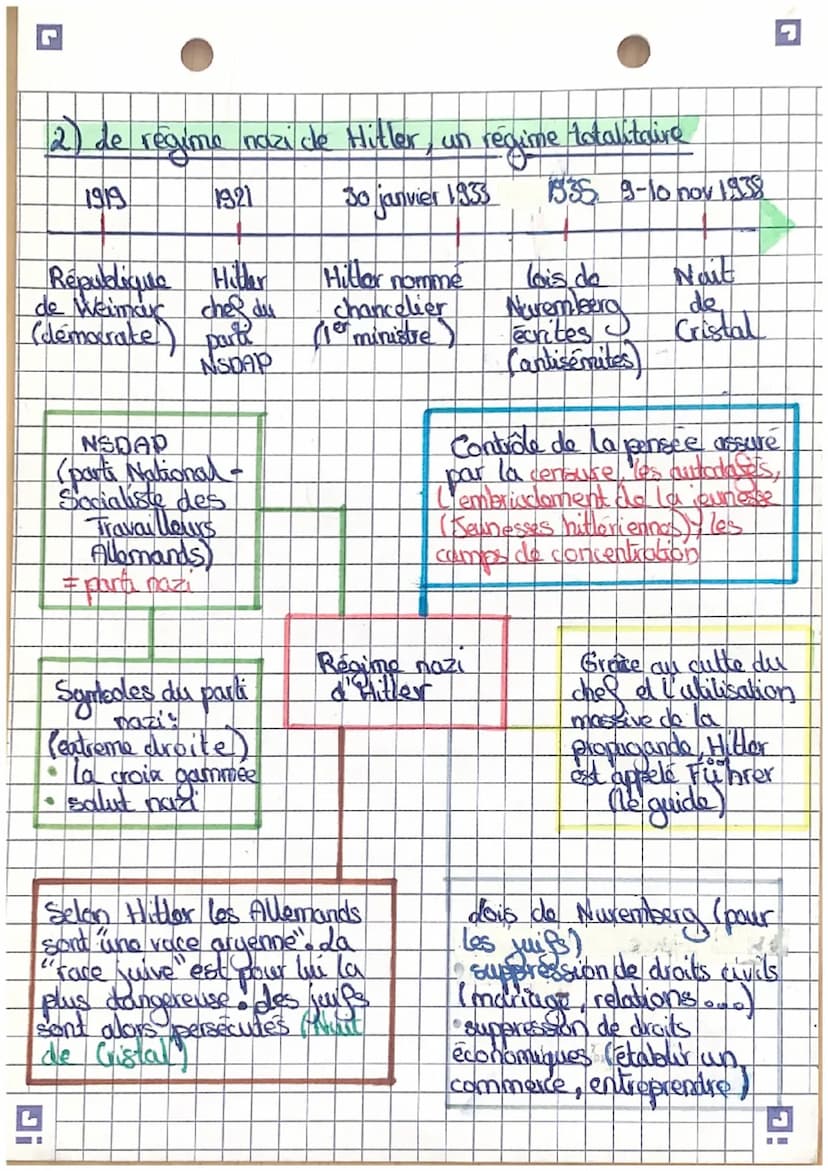 2) Le régime nazi de Hitler, un régime totalitaire
1919 1921 30 janvier 1933 1935 9-10 nov 1938
République
de Weimar
(démocrate)
Hitler
chef du
parti
NSDAP
Hitler nommé
chancelier
(1er ministre)
lois de
Nuremberg
écrites
(antisémites)
Nuit
de
Cristal
NSDAP
(parti National-
Socialiste des
Travailleurs
Allemands)
= parti nazi
Contrôle de la pensée assuré
par la censure, les autodafés,
l'embriadament de la jeunesse
(Jeunesses hitlériennes), les
camps de concentration
Symboles du parti
nazi:
(extreme droite)
• la croix gammée
• salut nazi
Régime nazi
d'Hitler
Grâce au culte du
chef et l'utilisation
massive de la
propagande, Hitler
est appelé Führer
(le guide)
Selon Hitler les Allemands
sont "une race aryenne". La
"race juive" est pour lui la
plus dangereuse. Les juifs
sont alors persécutés (Nuit
de Cristal)
Lois de Nuremberg (pour
les juifs)
• suppréssion de droits civils
(mariage, relations...)
• suppression de droits
économiques (établir un
commerce, entreprendre)